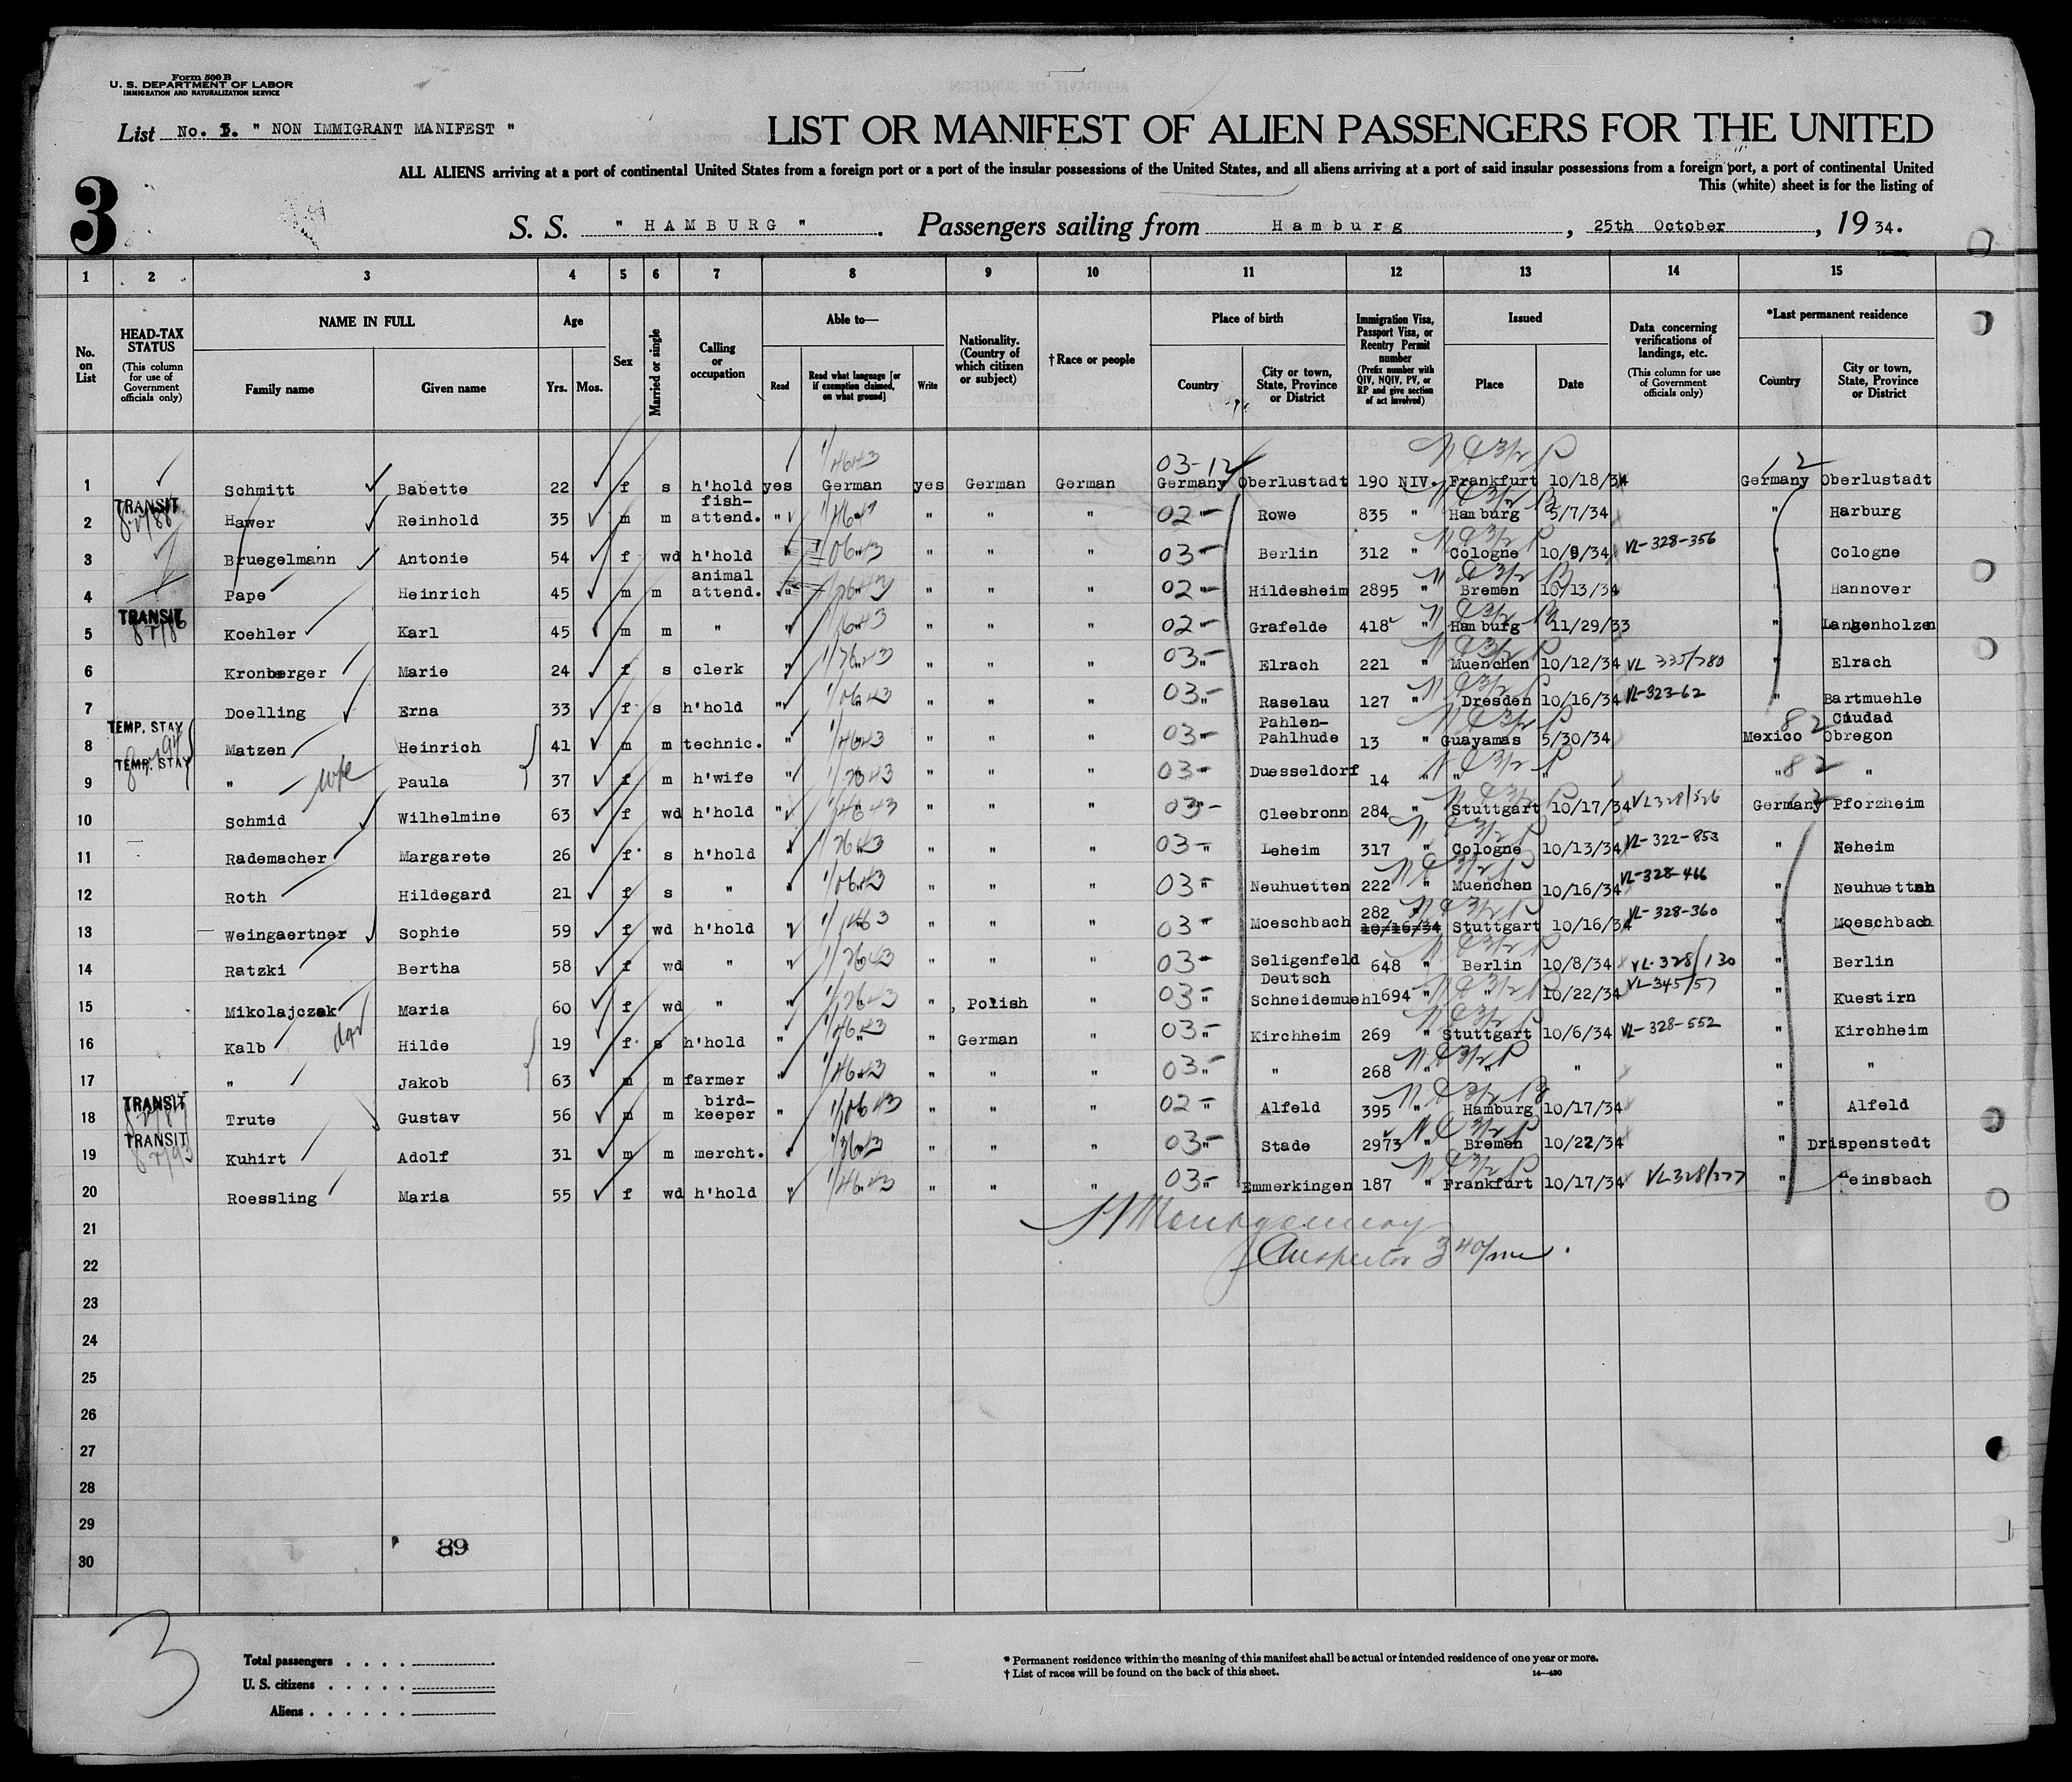 Form 500 B
U. S. DEPARTMENT OF LABOR
IMMIGRATION AND NATURALIZATION SERVICE
List No. " NON IMMIGRANT MANIFEST "
LIST OR MANIFEST OF ALIEN PASSENGERS FOR THE UNITED
ALL ALIENS arriving at a port of continental United States from a foreign port or a port of the insular possessions of the United States, and all aliens arriving at a port of said insular possessions from a foreign port, a port of continental United
This (white) sheet is for the listing of
3
S. S. " HAMBURG ". Passengers sailing from Hamburg, 25th October, 1934.
1 2 3 4 5 6 7 8 9 10 11 12 13 14 15
No. on List
HEAD-TAX STATUS (This column for use of Government officials only)
NAME IN FULL Family name Given name
Age Yrs. Mos.
Sex
Married or single
Calling or occupation
Able to— Read Read what language [or if exemption claimed, on what ground] Write
Nationality. (Country of which citizen or subject)
†Race or people
Place of birth Country City or town, State, Province or District
Immigration Visa, Passport Visa, or Reentry Permit number (Prefix number with QIV, NQIV, PV, or RP and give section of act involved)
Issued Place Date
Data concerning verifications of landings, etc. (This column for use of Government officials only)
*Last permanent residence Country City or town, State, Province or District
1 Schmitt Babette 22 f s h'hold yes German yes German German 03-12 Germany Oberlustadt 190 NIV. Frankfurt 10/18/34 12 Germany Oberlustadt
2 TRANSIT Hawer Reinhold 35 m m fish-attend. " " " " 02- " Rowe 835 " Hamburg 5/7/34 " Harburg
3 Bruegelmann Antonie 54 f wd h'hold " " " " " 03- Berlin 312 " Cologne 10/9/34 VL-328-356 " Cologne
4 Pape Heinrich 45 m m animal attend. " " " " " 02- " Hildesheim 2895 " Bremen 10/13/34 " Hannover
5 TRANSIT Koehler Karl 45 m m " " " " " 02- " Grafelde 418 " Hamburg 11/29/33 " Langenholzen
6 Kronberger Marie 24 f s clerk " " " " " 03- " Elrach 221 " Muenchen 10/12/34 VL 335/780 " Elrach
7 Doelling Erna 33 f s h'hold " " " " " 03- " Raselau 127 " Dresden 10/16/34 VL-323-62 " Bartmuehle
8 TEMP. STAY Matzen Heinrich 41 m m technic. " " " " " 03- " Pahlen-Pahlhude 13 " Guayamas 5/30/34 82 Mexico Ciudad Obregon
9 TEMP. STAY " wife Paula 37 f m h'wife " " " " " 03- " Duesseldorf 14 " " " 82 " "
10 Schmid Wilhelmine 63 f wd h'hold " " " " " 03- " Cleebronn 284 " Stuttgart 10/17/34 VL328/526 Germany Pforzheim
11 Rademacher Margarete 26 f s h'hold " " " " " 03- " Leheim 317 " Cologne 10/13/34 VL-322-853 " Neheim
12 Roth Hildegard 21 f s " " " " " " 03- " Neuhuetten 222 " Muenchen 10/16/34 VL-328-466 " Neuhuetten
13 Weingaertner Sophie 59 f wd h'hold " " " " " 03- " Moeschbach 282 " 10/16/34 Stuttgart 10/16/34 VL-328-360 " Moeschbach
14 Ratzki Bertha 58 f wd " " " " " " 03- " Seligenfeld 648 " Berlin 10/8/34 VL-328/130 " Berlin
15 Mikolajczak Maria 60 f wd " " " " Polish " 03- " Deutsch Schneidemuehl 694 " " 10/22/34 VL-345/57 " Kuestirn
16 Kalb dgr Hilde 19 f s h'hold " " " German " 03- " Kirchheim 269 " Stuttgart 10/6/34 VL-328-552 " Kirchheim
17 " Jakob 63 m m farmer " " " " " 03- " " 268 " " " " "
18 TRANSIT Trute Gustav 56 m m bird-keeper " " " " " 02- " Alfeld 395 " Hamburg 10/17/34 " Alfeld
19 TRANSIT Kuhirt Adolf 31 m m mercht. " " " " " 03- " Stade 2973 " Bremen 10/22/34 " Drispenstedt
20 Roessling Maria 55 f wd h'hold " " " " " 03- " Emmerkingen 187 " Frankfurt 10/17/34 VL328/277 " einsbach
21 Montgomery
22 Inspector
23
24
25
26
27
28
29
30
89
3
Total passengers
U. S. citizens
Aliens
* Permanent residence within the meaning of this manifest shall be actual or intended residence of one year or more.
† List of races will be found on the back of this sheet. 14—430